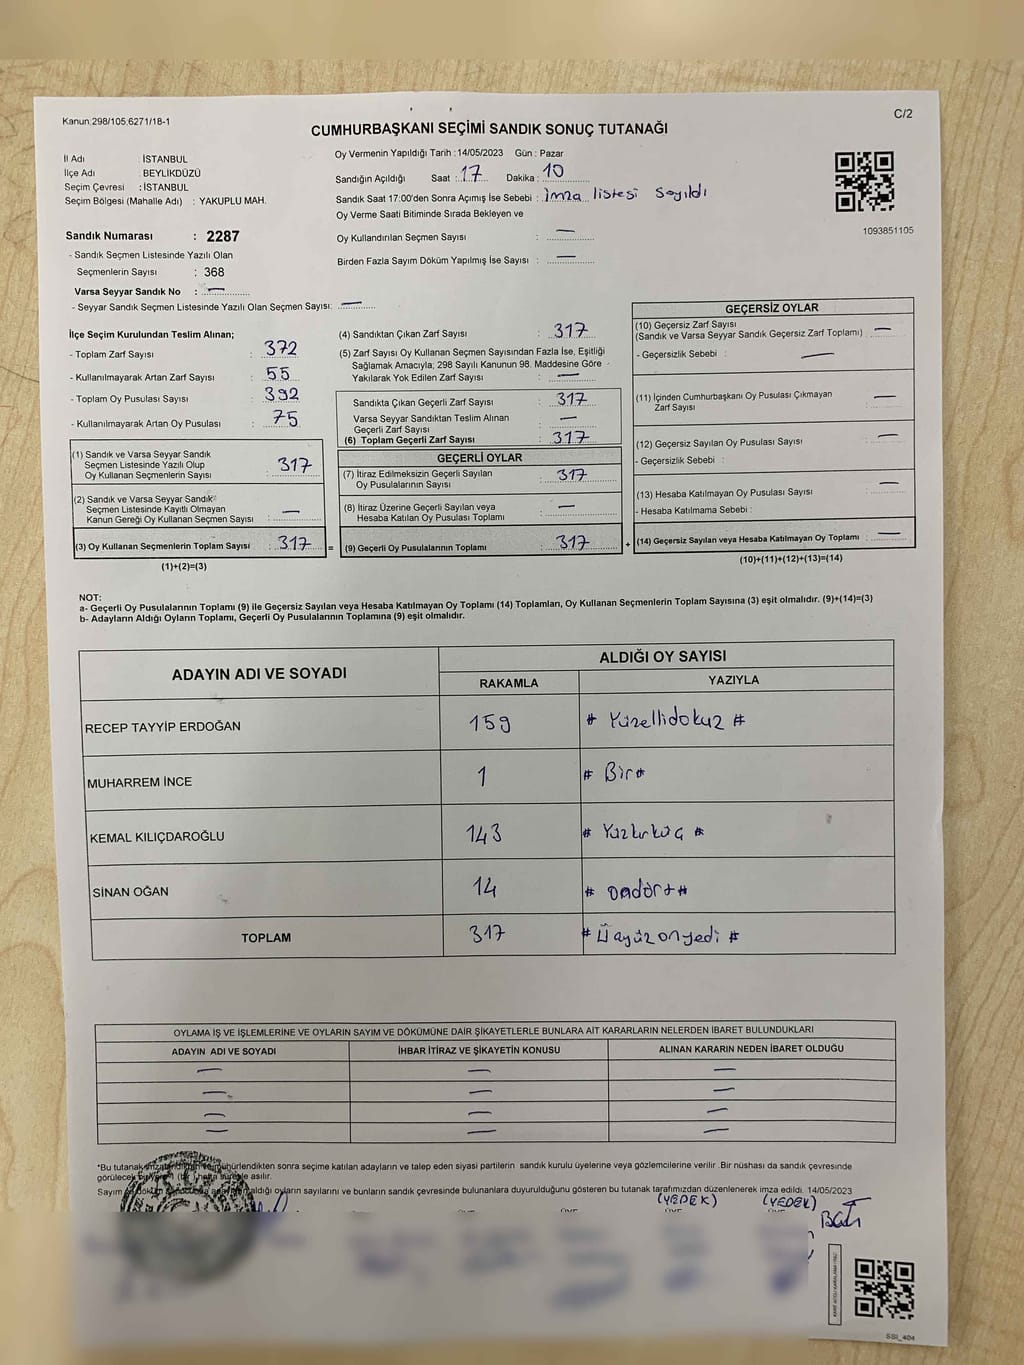 Kanun:298/105,6271/18-1
C/2
CUMHURBAŞKANI SEÇİMİ SANDIK SONUÇ TUTANAĞI
İl Adı : İSTANBUL
İlçe Adı : BEYLİKDÜZÜ
Seçim Çevresi : İSTANBUL
Seçim Bölgesi (Mahalle Adı) : YAKUPLU MAH.
Oy Vermenin Yapıldığı Tarih : 14/05/2023 Gün : Pazar
Sandığın Açıldığı Saat : 17 Dakika : 10
Sandık Saat 17:00'den Sonra Açımış İse Sebebi : İmza listesi sayıldı
Oy Verme Saati Bitiminde Sırada Bekleyen ve
Oy Kullandırılan Seçmen Sayısı : —
Birden Fazla Sayım Döküm Yapılmış İse Sayısı : —
1093851105
Sandık Numarası : 2287
- Sandık Seçmen Listesinde Yazılı Olan
Seçmenlerin Sayısı : 368
Varsa Seyyar Sandık No : —
- Seyyar Sandık Seçmen Listesinde Yazılı Olan Seçmen Sayısı: —
İlçe Seçim Kurulundan Teslim Alınan;
- Toplam Zarf Sayısı : 372
- Kullanılmayarak Artan Zarf Sayısı : 55
- Toplam Oy Pusulası Sayısı : 392
- Kullanılmayarak Artan Oy Pusulası : 75
(1) Sandık ve Varsa Seyyar Sandık
Seçmen Listesinde Yazılı Olup
Oy Kullanan Seçmenlerin Sayısı : 317
(2) Sandık ve Varsa Seyyar Sandık
Seçmen Listesinde Kayıtlı Olmayan
Kanun Gereği Oy Kullanan Seçmen Sayısı : —
(3) Oy Kullanan Seçmenlerin Toplam Sayısı : 317 =
(1)+(2)=(3)
(4) Sandıktan Çıkan Zarf Sayısı : 317
(5) Zarf Sayısı Oy Kullanan Seçmen Sayısından Fazla İse, Eşitliği
Sağlamak Amacıyla; 298 Sayılı Kanunun 98. Maddesine Göre
Yakılarak Yok Edilen Zarf Sayısı : —
Sandıkta Çıkan Geçerli Zarf Sayısı : 317
Varsa Seyyar Sandıktan Teslim Alınan
Geçerli Zarf Sayısı : —
(6) Toplam Geçerli Zarf Sayısı : 317
GEÇERLİ OYLAR
(7) İtiraz Edilmeksizin Geçerli Sayılan
Oy Pusulalarının Sayısı : 317
(8) İtiraz Üzerine Geçerli Sayılan veya
Hesaba Katılan Oy Pusulası Toplamı : —
(9) Geçerli Oy Pusulalarının Toplamı : 317 +
GEÇERSİZ OYLAR
(10) Geçersiz Zarf Sayısı
(Sandık ve Varsa Seyyar Sandık Geçersiz Zarf Toplamı) : —
- Geçersizlik Sebebi : —
(11) İçinden Cumhurbaşkanı Oy Pusulası Çıkmayan
Zarf Sayısı : —
(12) Geçersiz Sayılan Oy Pusulası Sayısı : —
- Geçersizlik Sebebi :
(13) Hesaba Katılmayan Oy Pusulası Sayısı : —
- Hesaba Katılmama Sebebi :
(14) Geçersiz Sayılan veya Hesaba Katılmayan Oy Toplamı : —
(10)+(11)+(12)+(13)=(14)
NOT:
a- Geçerli Oy Pusulalarının Toplamı (9) ile Geçersiz Sayılan veya Hesaba Katılmayan Oy Toplamı (14) Toplamları, Oy Kullanan Seçmenlerin Toplam Sayısına (3) eşit olmalıdır. (9)+(14)=(3)
b- Adayların Aldığı Oyların Toplamı, Geçerli Oy Pusulalarının Toplamına (9) eşit olmalıdır.
ADAYIN ADI VE SOYADI
ALDIĞI OY SAYISI
RAKAMLA YAZIYLA
RECEP TAYYİP ERDOĞAN 159 # Yüzellidokuz #
MUHARREM İNCE 1 # Bir #
KEMAL KILIÇDAROĞLU 143 # Yüzkırküç #
SİNAN OĞAN 14 # Ondört #
TOPLAM 317 # Üçyüzonyedi #
OYLAMA İŞ VE İŞLEMLERİNE VE OYLARIN SAYIM VE DÖKÜMÜNE DAİR ŞİKAYETLERLE BUNLARA AİT KARARLARIN NELERDEN İBARET BULUNDUKLARI
ADAYIN ADI VE SOYADI İHBAR İTİRAZ VE ŞİKAYETİN KONUSU ALINAN KARARIN NEDEN İBARET OLDUĞU
— — —
— — —
— — —
— — —
*Bu tutanak sonra seçime katılan adayların ve talep eden siyasi partilerin sandık kurulu üyelerine veya gözlemcilerine verilir .Bir nüshası da sandık çevresinde
görülecek asılır.
Sayım aldığı oyların sayılarını ve bunların sandık çevresinde bulunanlara duyurulduğunu gösteren bu tutanak tarafımızdan düzenlenerek imza edildi. 14/05/2023
(YEDEK) (YEDEK)
SSI_404